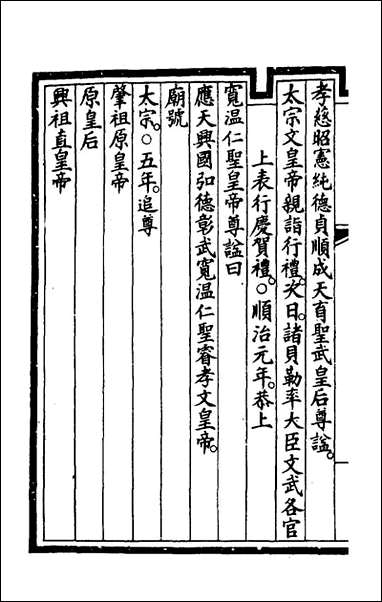 孝慈昭憲純德貞順成天育聖武皇后尊諡。
太宗文皇帝親詣行禮。次日。諸貝勒率大臣文武各官
上表行慶賀禮。○順治元年。恭上
寬温仁聖皇帝尊諡曰
應天興國弘德彰武寬温仁聖睿孝文皇帝。
廟號
太宗。○五年。追尊
肇祖原皇帝
原皇后
興祖直皇帝